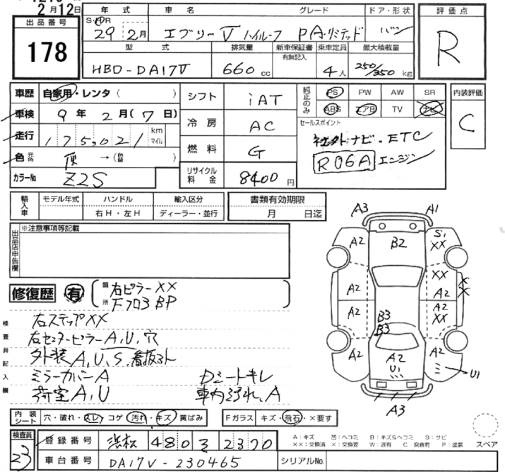 2月12日
出品番号
178
年式 車名 グレード ドア・形状
29 2月 エブリーV ハイルーフ PAリミテッド バン
型式 排気量 新車保証書 有無記入 乗車定員 最大積載量
HBD-DA17V 660cc 4人 250/350kg
評価点
R
車歴 自家用・レンタ ( )
車検 9年 2月 (7日)
走行 175,021 km マイル
色
カラーNo Z2S
シフト iAT
冷房 AC
燃料 G
リサイクル料金 8400円
純正のみ PS PW AW SR
ABS エアB TV
セールスポイント
社外ナビ・ETC
R06A エンジン
内装評価
C
輸入車 モデル年式 ハンドル 輸入区分
右H・左H ディーラー・並行
書類有効期限
月 日迄
出品店申告欄 ※注意事項等記載
修復歴 有 箇所 右ピラーXX
検査員記入欄
右ステップXX
右センターピラーA,U,穴
外装A,U,S,看板跡
ミラーカバーA Dシートキレ
荷室A,U 車内汚れ、A
A3 A1
B2
A2 S1 XX
A2 A2 XX
B3 B3
A2 A2 U1
A2 U1
A3
内装シート 穴・破れ・スレ・コゲ・汚れ・キズ・黄ばみ Fガラス キズ・飛石・×要す
検査員 23
登録番号 浜松 480 3 2370
車台番号 DA17V-230465 シリアルNo.
スペア